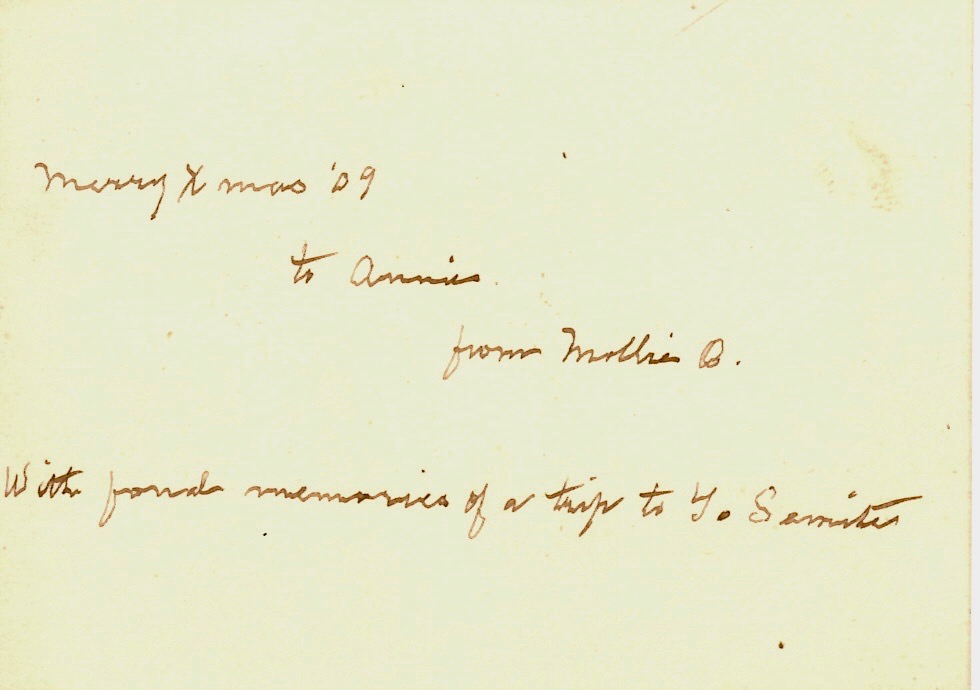 Merry Xmas '09
to Annie
from Mollie B.
With fond memories of a trip to Yo Semite